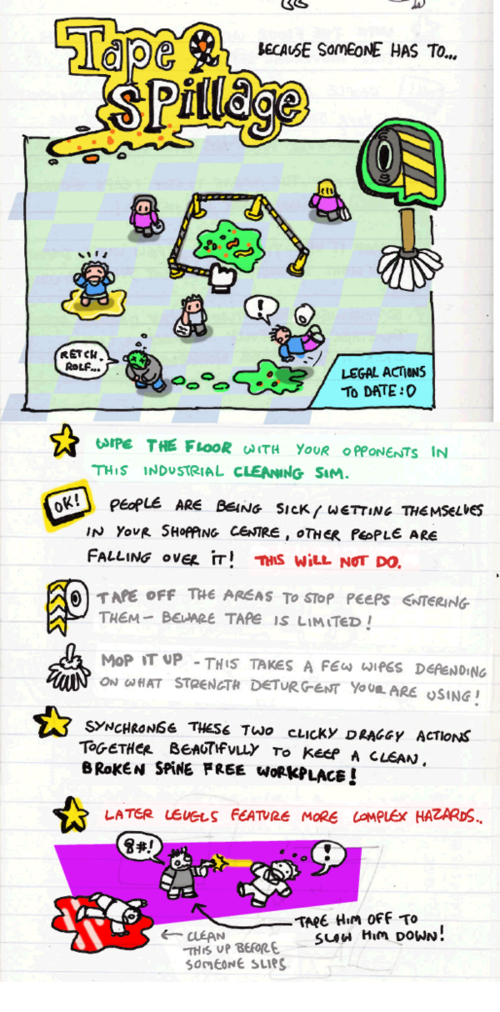 Tape &
Spillage
BECAUSE SOMEONE HAS TO...
!
RETCH.
ROLF...
LEGAL ACTIONS
TO DATE: 0
WIPE THE FLOOR WITH YOUR OPPONENTS IN
THIS INDUSTRIAL CLEANING SIM.
OK!
PEOPLE ARE BEING SICK / WETTING THEMSELVES
IN YOUR SHOPPING CENTRE, OTHER PEOPLE ARE
FALLING OVER IT! THIS WILL NOT DO.
TAPE OFF THE AREAS TO STOP PEEPS ENTERING
THEM - BEWARE TAPE IS LIMITED!
MOP IT UP - THIS TAKES A FEW WIPES DEPENDING
ON WHAT STRENGTH DETURGENT YOUR ARE USING!
SYNCHRONISE THESE TWO CLICKY DRAGGY ACTIONS
TOGETHER BEAUTIFULLY TO KEEP A CLEAN,
BROKEN SPINE FREE WORKPLACE!
LATER LEVELS FEATURE MORE COMPLEX HAZARDS..
8#!
!
TAPE HIM OFF TO
SLOW HIM DOWN!
CLEAN
THIS UP BEFORE
SOMEONE SLIPS